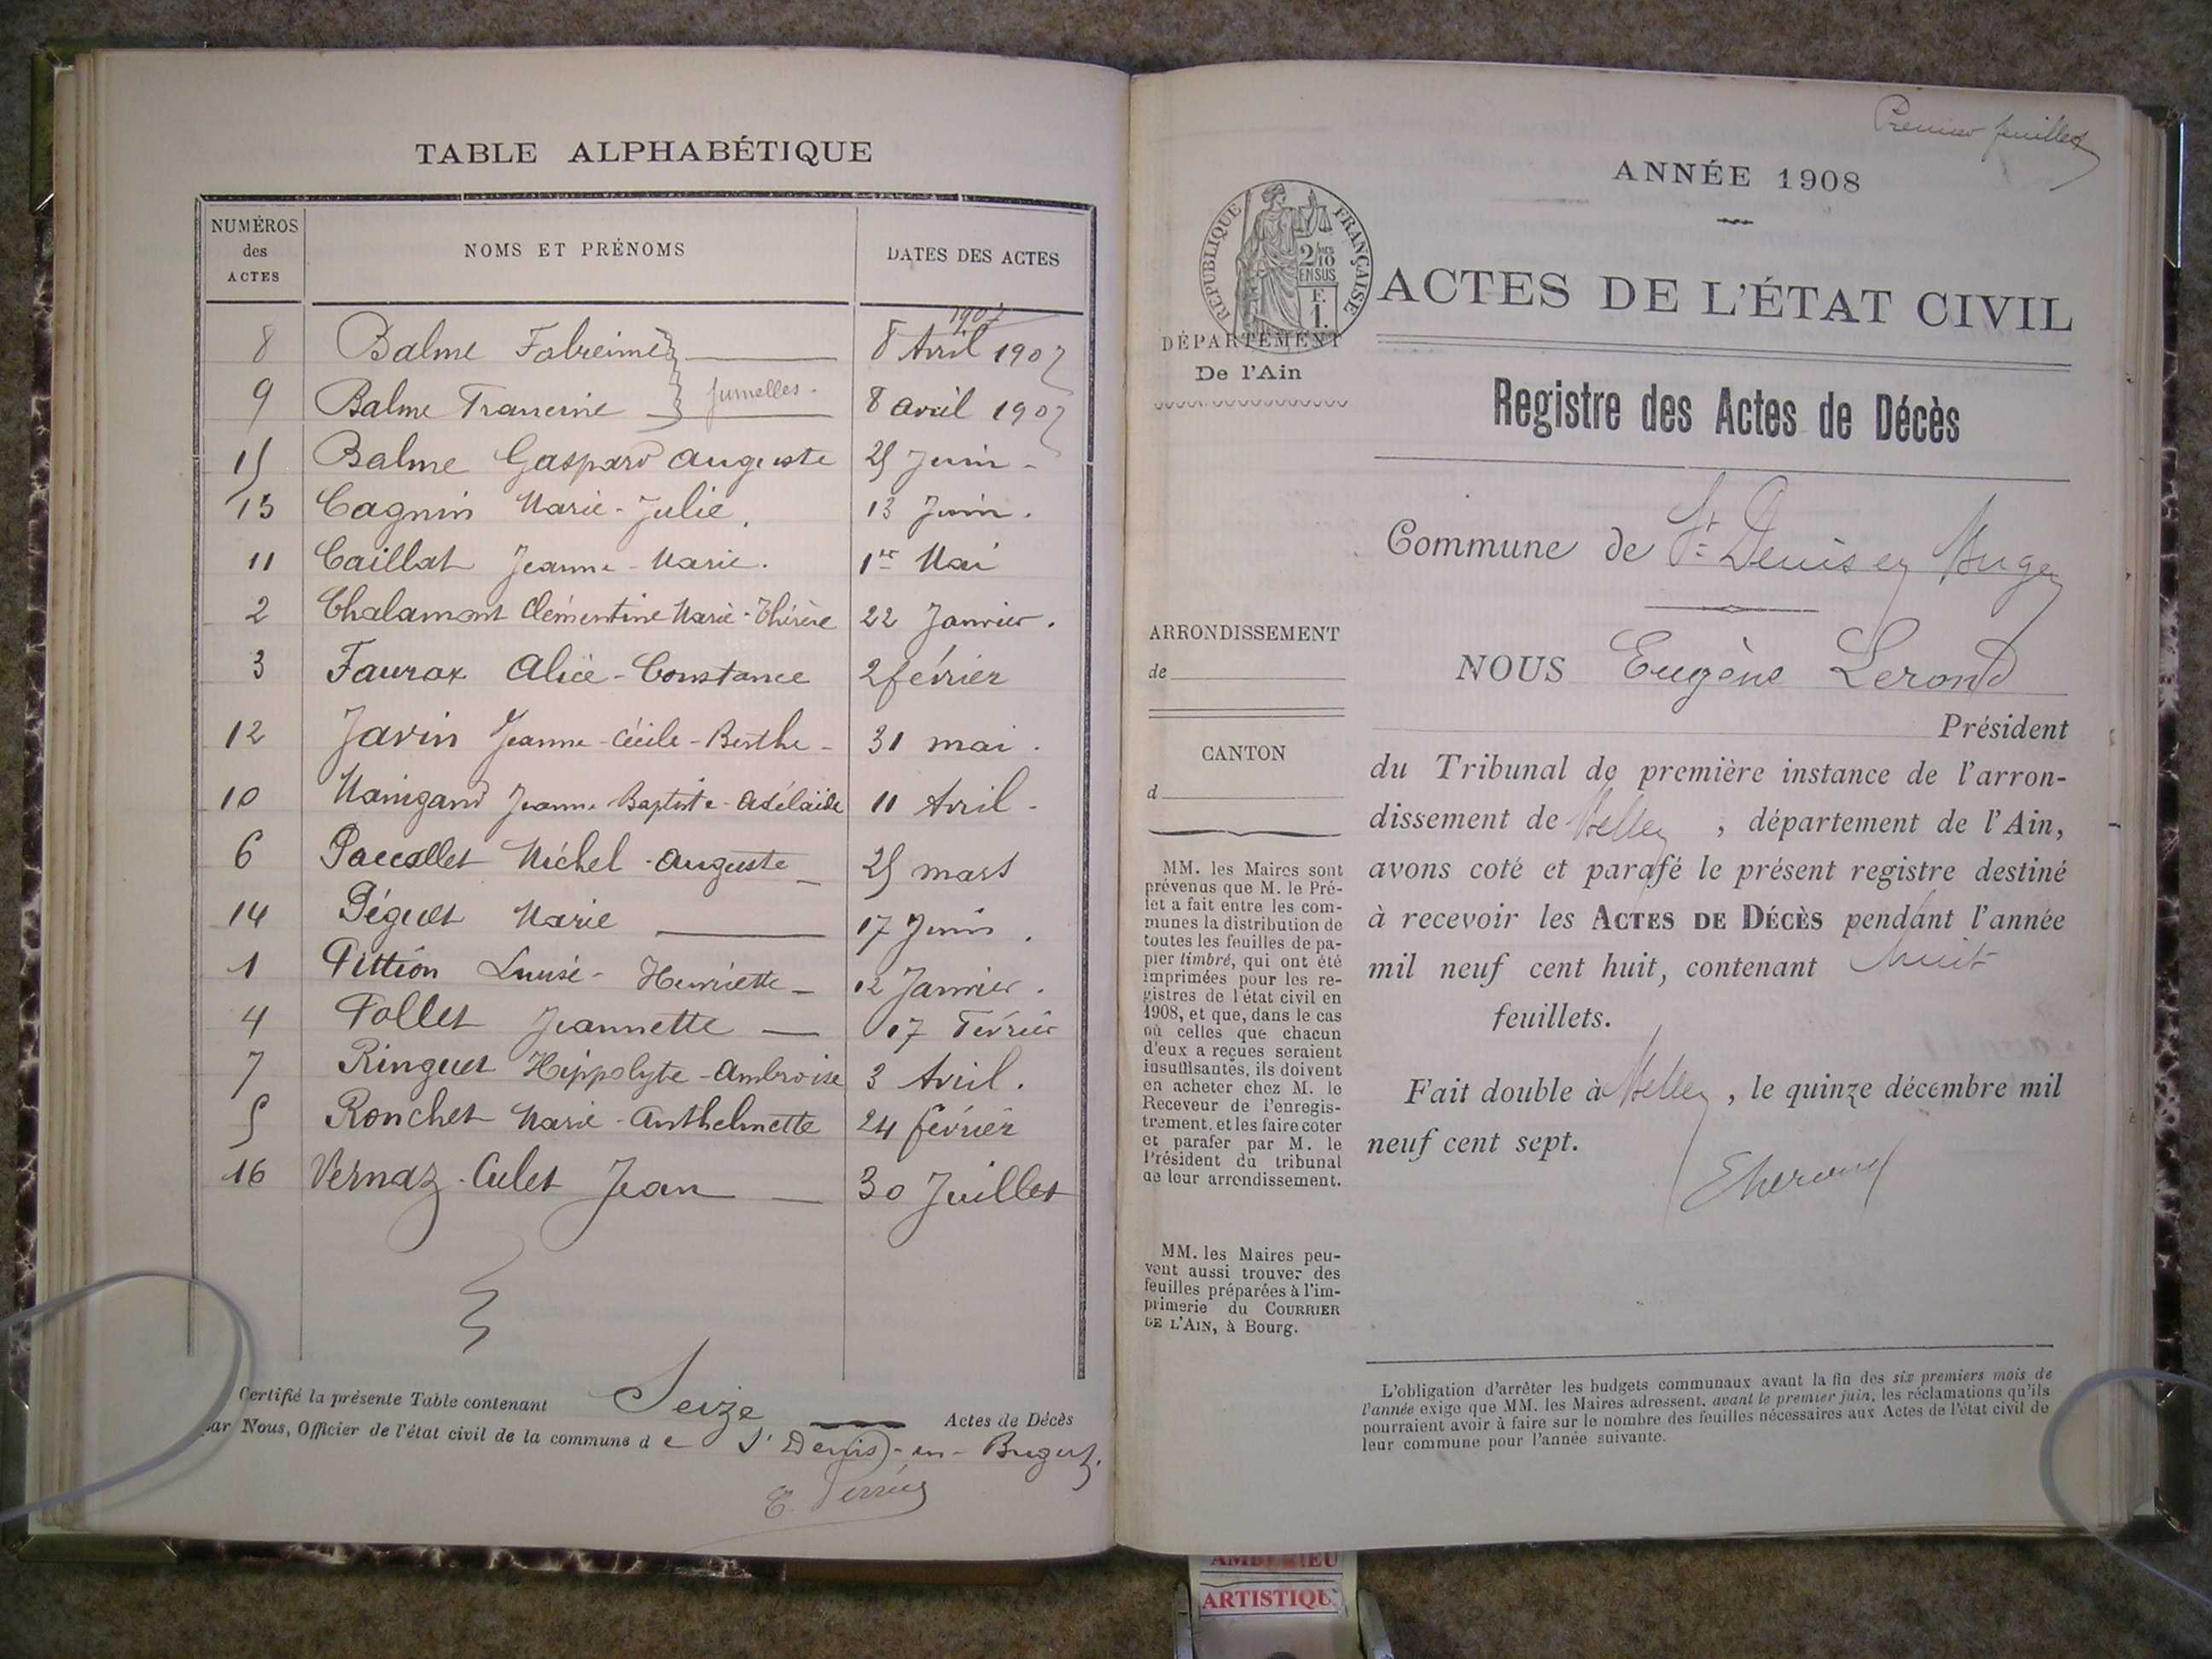 TABLE ALPHABÉTIQUE
NUMÉROS des ACTES
NOMS ET PRÉNOMS
DATES DES ACTES
1907
8 Balme 8 Avril 1907
9 Balme Francine jumelles 8 avril 1907
15 Balme Gaspard Auguste 25 Juin -
13 Cagnin Marie-Julie. 13 Juin.
11 Caillat Jeanne-Marie. 1er Mai
2 Chalamont Clémentine Marie-Thérèse 22 Janvier.
3 Faurax Alice-Constance 2 février
12 Javin Jeanne-Cécile-Berthe - 31 mai.
10 Maingand Jeanne Baptiste-Adélaïde 11 Avril -
6 Paccallet Michel-Auguste 25 mars
14 Péguet Marie 17 Juin.
1 Pittion Louise-Henriette 12 Janvier.
4 Pollet Jeannette 17 Février
7 Ringuet Hippolyte-Ambroise 3 Avril.
5 Ronchet Marie-Anthelmette 24 février
16 Vernaz-Culet Jean 30 Juillet
Certifié la présente Table contenant Seize Actes de Décès
par Nous, Officier de l'état civil de la commune de St Denis-en-Bugey.
Premier feuillet
ANNÉE 1908
RÉPUBLIQUE FRANÇAISE
2/10 EN SUS
F. 1.
ACTES DE L'ÉTAT CIVIL
DÉPARTEMENT
De l'Ain
Registre des Actes de Décès
Commune de St Denis en Bugey
ARRONDISSEMENT
de
NOUS Eugène Lerond
Président
CANTON
d
du Tribunal de première instance de l'arron-
dissement de Belley, département de l'Ain,
avons coté et parafé le présent registre destiné
à recevoir les ACTES DE DÉCÈS pendant l'année
mil neuf cent huit, contenant huit
feuillets.
Fait double à Belley, le quinze décembre mil
neuf cent sept.
MM. les Maires sont
prévenus que M. le Pré-
fet a fait entre les com-
munes la distribution de
toutes les feuilles de pa-
pier timbré, qui ont été
imprimées pour les re-
gistres de l'état civil en
1908, et que, dans le cas
où celles que chacun
d'eux a reçues seraient
insuffisantes, ils doivent
en acheter chez M. le
Receveur de l'enregis-
trement, et les faire coter
et parafer par M. le
Président du tribunal
de leur arrondissement.
MM. les Maires peu-
vent aussi trouver des
feuilles préparées à l'im-
primerie du COURRIER
DE L'AIN, à Bourg.
L'obligation d'arrêter les budgets communaux avant la fin des six premiers mois de
l'année exige que MM. les Maires adressent, avant le premier juin, les réclamations qu'ils
pourraient avoir à faire sur le nombre des feuilles nécessaires aux Actes de l'état civil de
leur commune pour l'année suivante.
ARTISTIQU